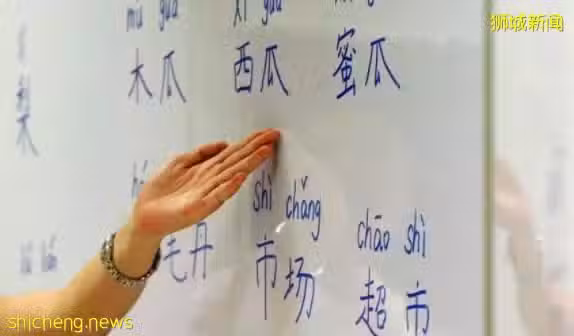 狮城新闻
mù guā
木瓜
xī guā
西瓜
guā
蜜瓜
梨
毛丹
shì chǎng
市场
chāo shì
超市
shicheng.news